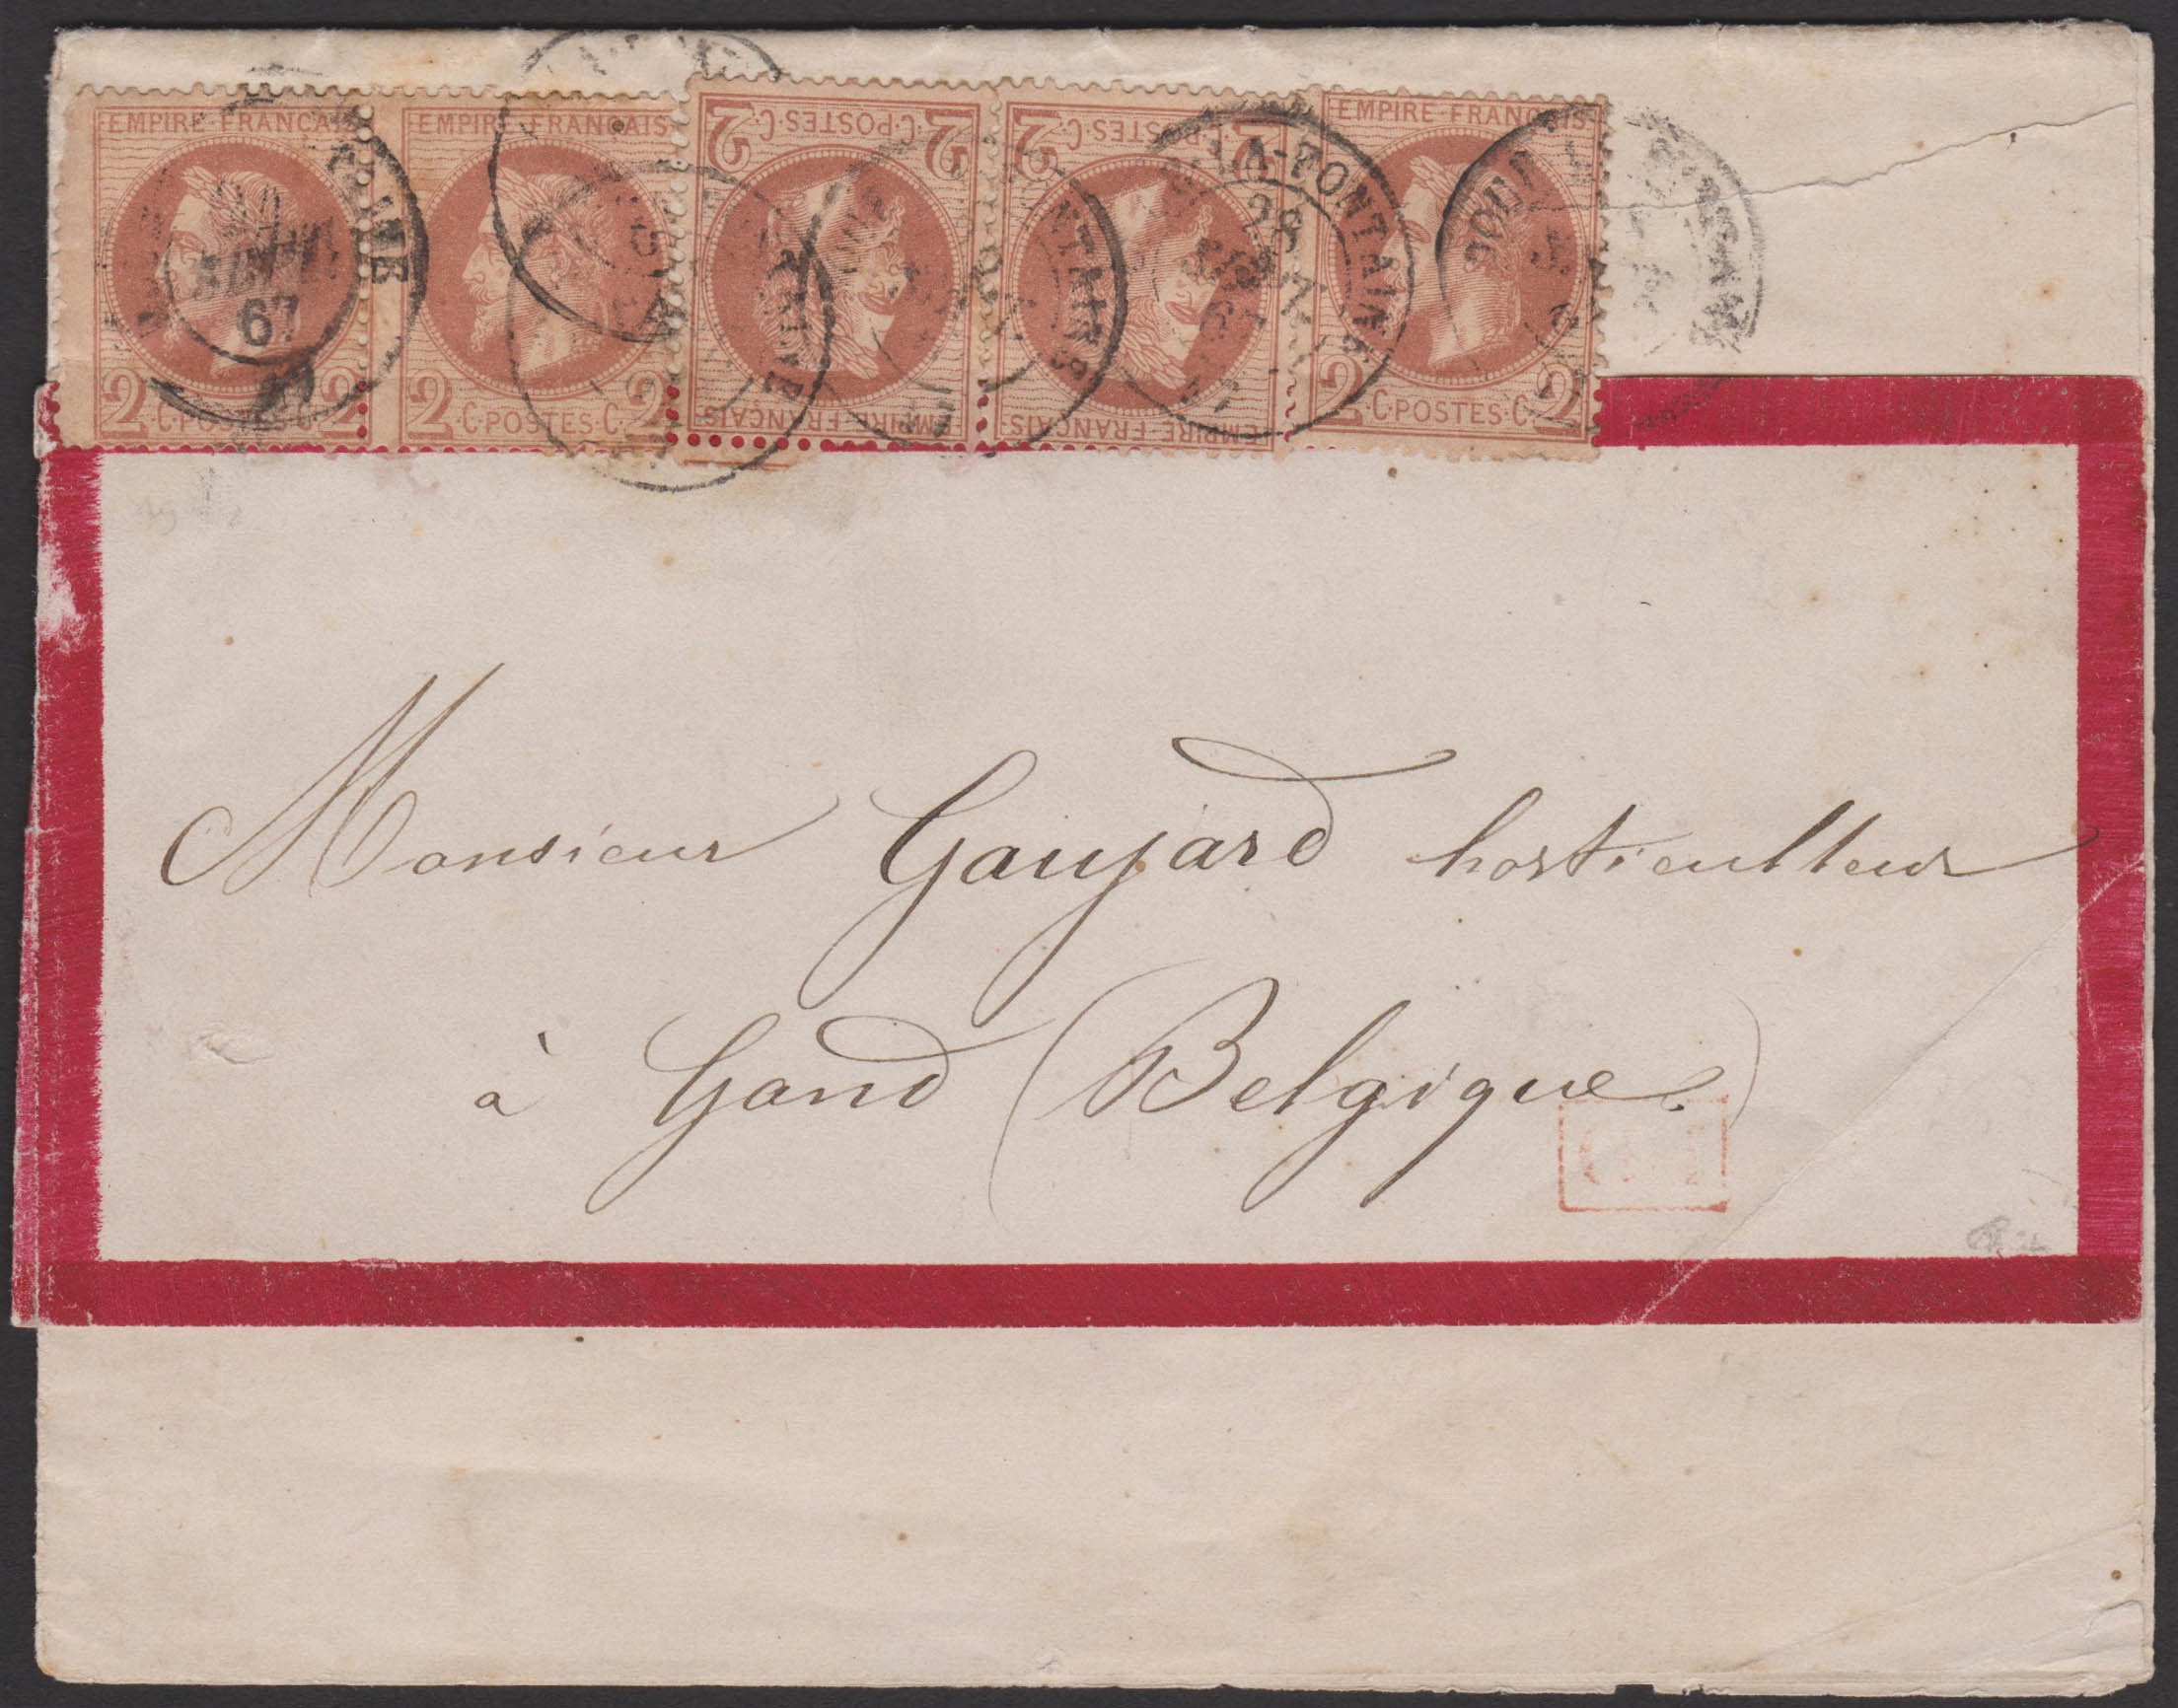 EMPIRE FRANÇAIS
2 ·C·POSTES·C· 2
EMPIRE FRANÇAIS
2 ·C·POSTES·C· 2
2 ·C·POSTES·C· 2
EMPIRE·FRANÇAIS
2 ·C·POSTES·C· 2
EMPIRE·FRANÇAIS
EMPIRE·FRANÇAIS
2 ·C·POSTES·C· 2
67
LA-FONTAINE
28
Monsieur Gaujard horticulteur
à Gand (Belgique.)